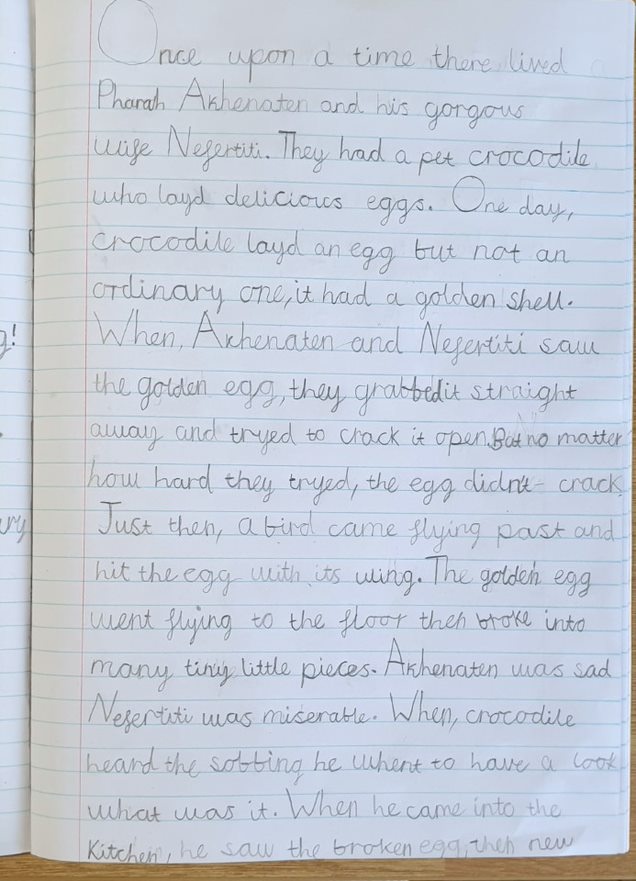 Once upon a time there lived a
Pharah Akhenaten and his gorgous
wife Nefertiti. They had a pet crocodile
who layd delicious eggs. One day,
crocodile layd an egg but not an
ordinary one, it had a golden shell.
When, Akhenaten and Nefertiti saw
g!
the golden egg, they grabbed it straight
away and tryed to crack it open. But no matter
how hard they tryed, the egg didn't crack.
ry
Just then, a bird came flying past and
hit the egg with its wing. The golden egg
went flying to the floor then broke into
many tiny little pieces. Akhenaten was sad
Nefertiti was miserable. When, crocodile
heard the sobbing he whent to have a look
what was it. When he came into the
Kitchen, he saw the broken egg, then new